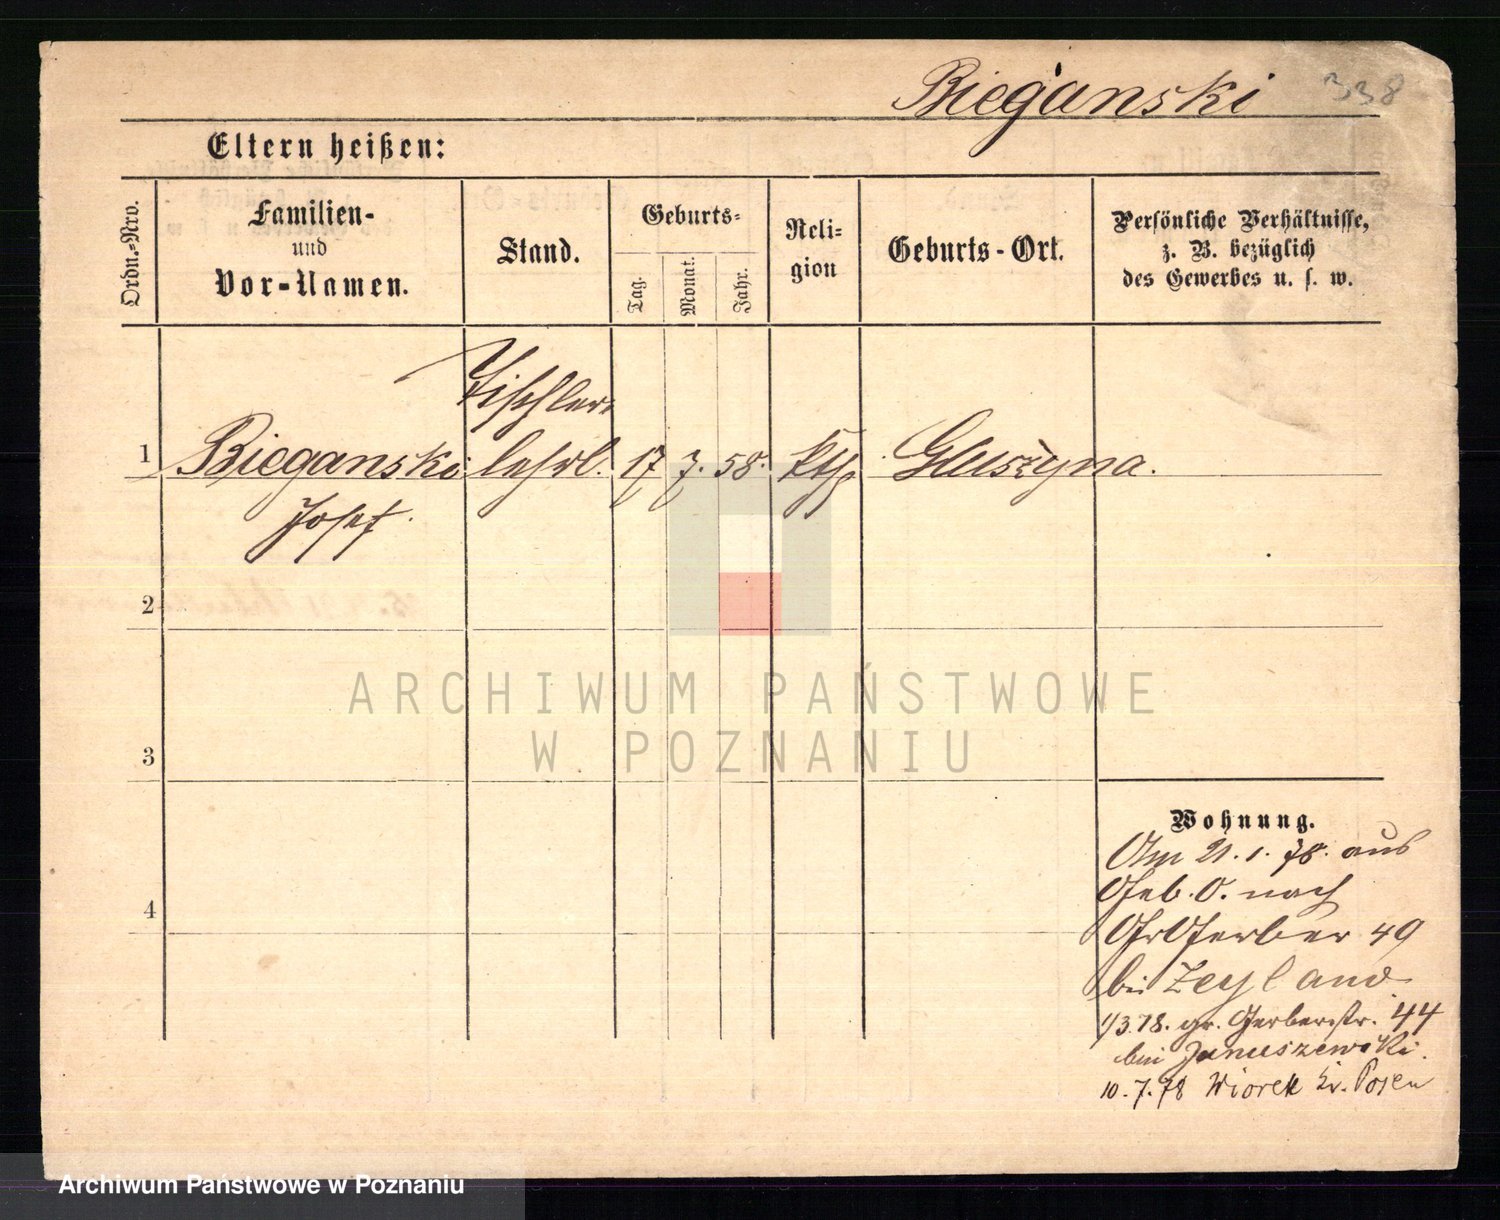 Bieganski 338
Eltern heißen:
Ordn.-Nro.
Familien-
und
Vor-Namen.
Stand.
Geburts-
Tag.
Monat.
Jahr.
Reli-
gion
Geburts-Ort.
Persönliche Verhältnisse,
z. B. bezüglich
des Gewerbes u. s. w.
Tischler
1 Bieganski lehrl. 17 7. 58. kth Gluszyna.
Josef.
2
3
4
ARCHIWUM PAŃSTWOWE
W POZNANIU
Wohnung.
Am 21.1.78. aus
Geb. O. nach
Gr Gerber 49
bei Zeyland
1/3.78. gr. Gerberstr. 44
bei Januszewski.
10.7.78 Wiorek Kr. Posen
Archiwum Państwowe w Poznaniu